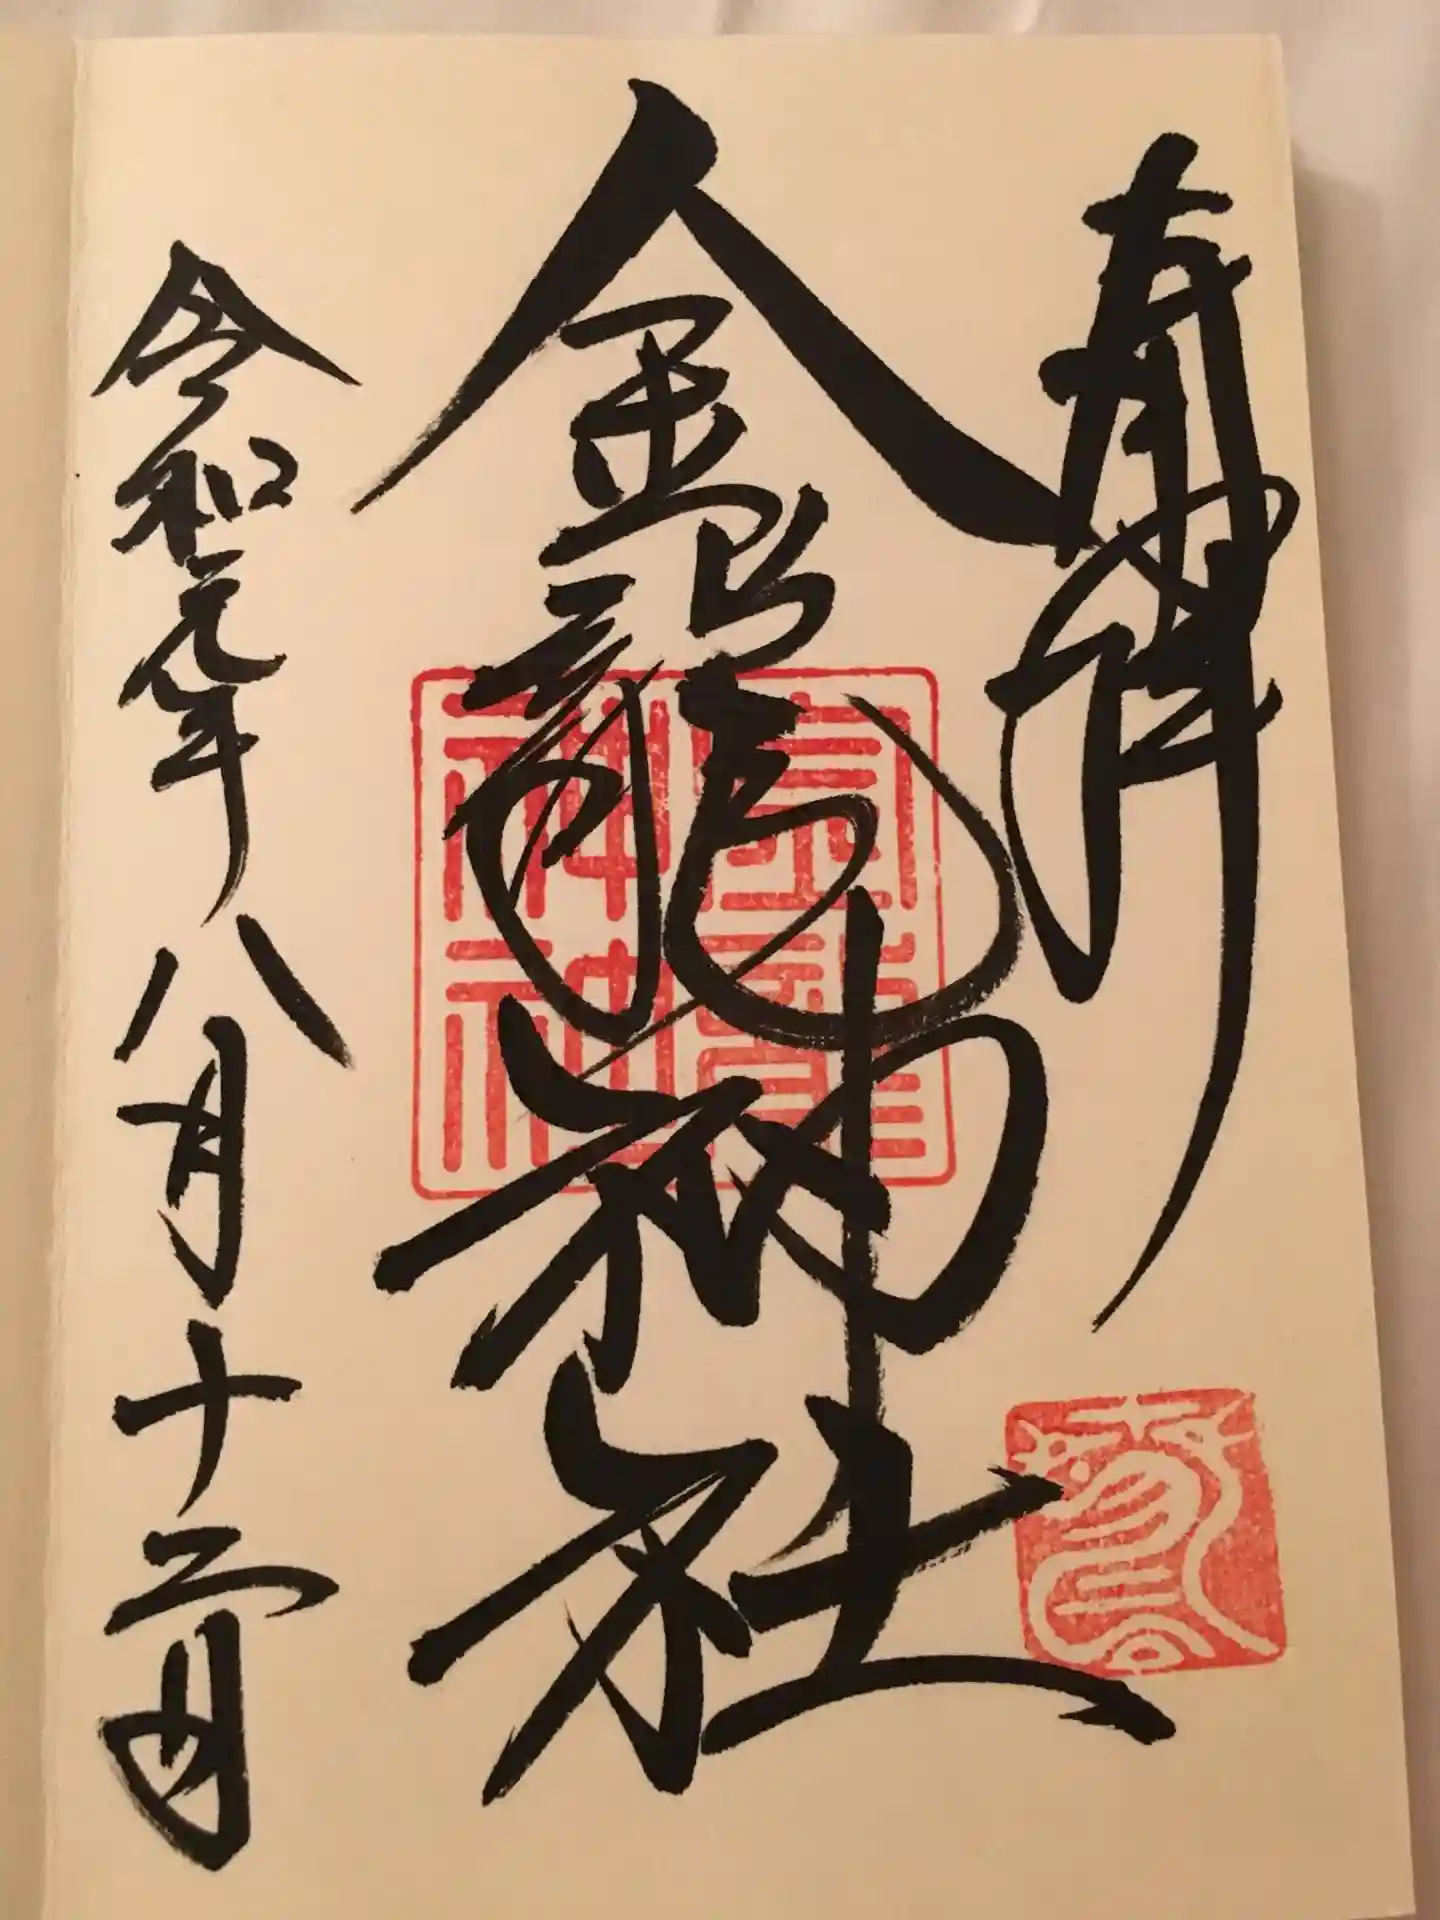 奉拝
金龍神社
令和元年八月十二日
金龍
神社